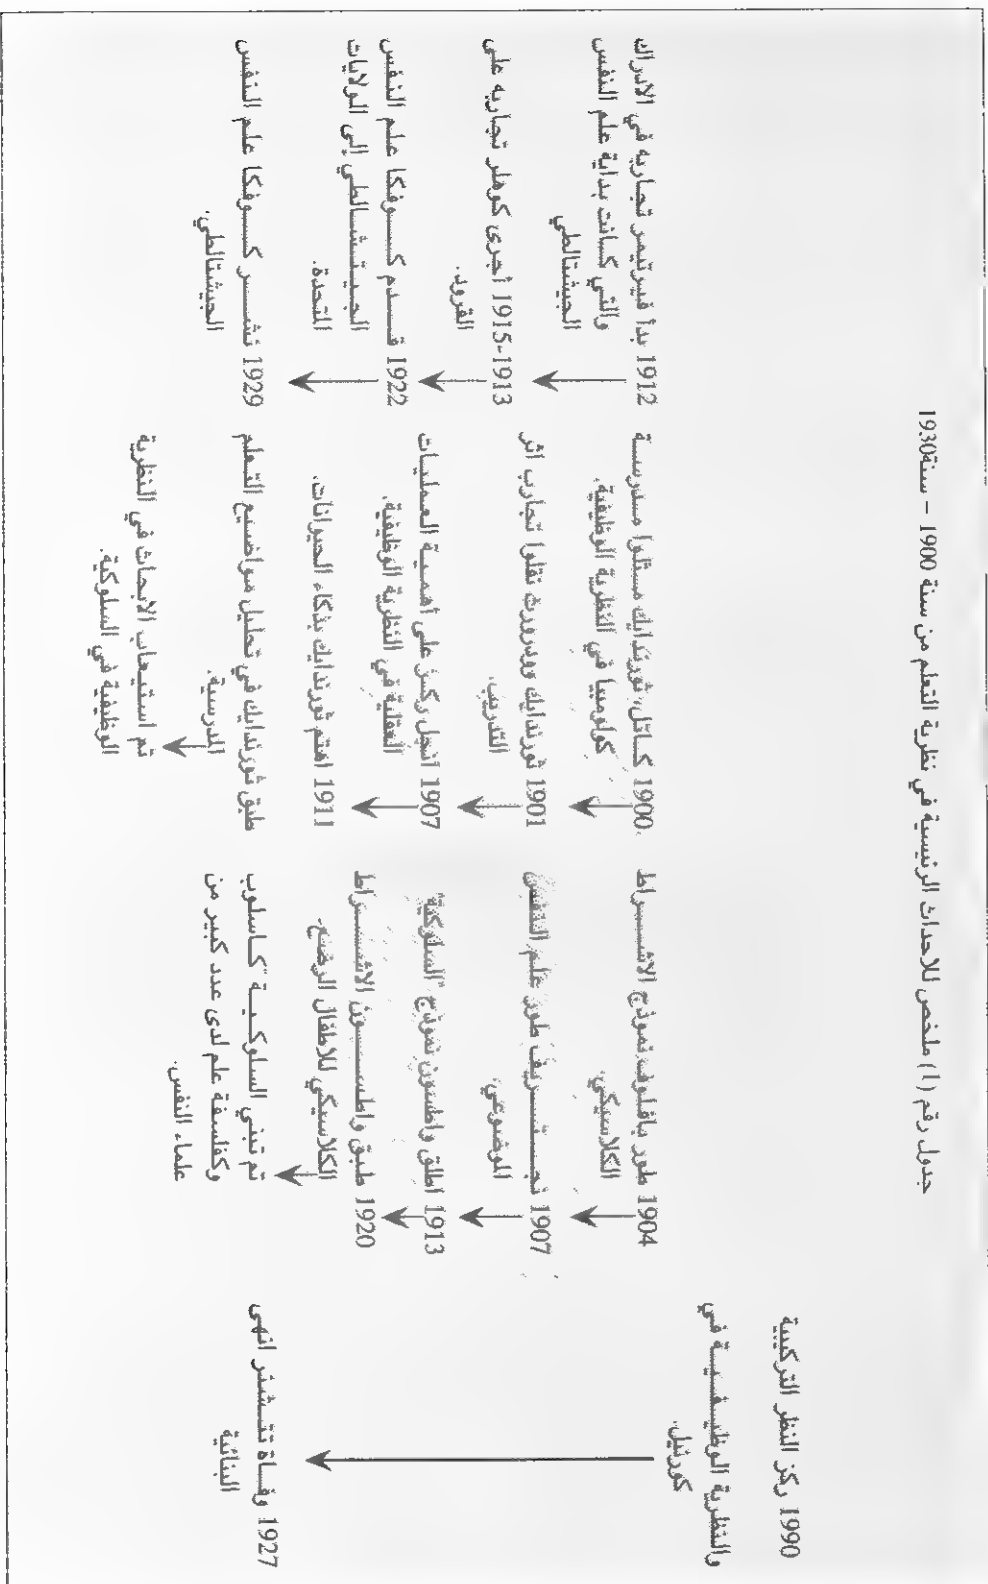 جدول رقم (1) ملخص للاحداث الرئيسية في نظرية التعلم من سنة 1900 – سنة1930
1990 ركز النظر التركيبية
والنظرية الوظيفية في
كورنيل.
1927 وفاة تتشنر انهى
البنائية
1904 طور بافلوف نموذج الاشراط
الكلاسيكي.
1907 نجد تشريف طور علم النفس
الموضوعي.
1913 اطلق واطسون نموذج "السلوكية"
1920 طبق واطسون الاشراط
الكلاسيكي للاطفال الرضع.
تم تبني السلوكية "كاسلوب
وكفلسفة علم لدى عدد كبير من
علماء النفس.
1900 كاتل، ثورندايك مثلوا مدرسة
كولومبيا في النظرية الوظيفية.
1901 ثورندايك وودرورث نقلوا تجارب اثر
التدريب.
1907 انجل ركز على اهمية العمليات
العقلية في النظرية الوظيفية.
1911 اهتم ثورندايك بذكاء الحيوانات.
طبق ثورندايك في تحليل مواضيع التعلم
المدرسية.
تم استيعاب الابحاث في النظرية
الوظيفية في السلوكية.
1912 بدأ فيرتيمر تجاربه في الادراك
والتي كانت بداية علم النفس
الجيشتالطي
1913-1915 أجرى كوهلر تجاربه على
القرود.
1922 قدم كوفكا علم النفس
الجيتشالطي إلى الولايات
المتحدة.
1929 نشر كوفكا علم النفس
الجيشتالطي.